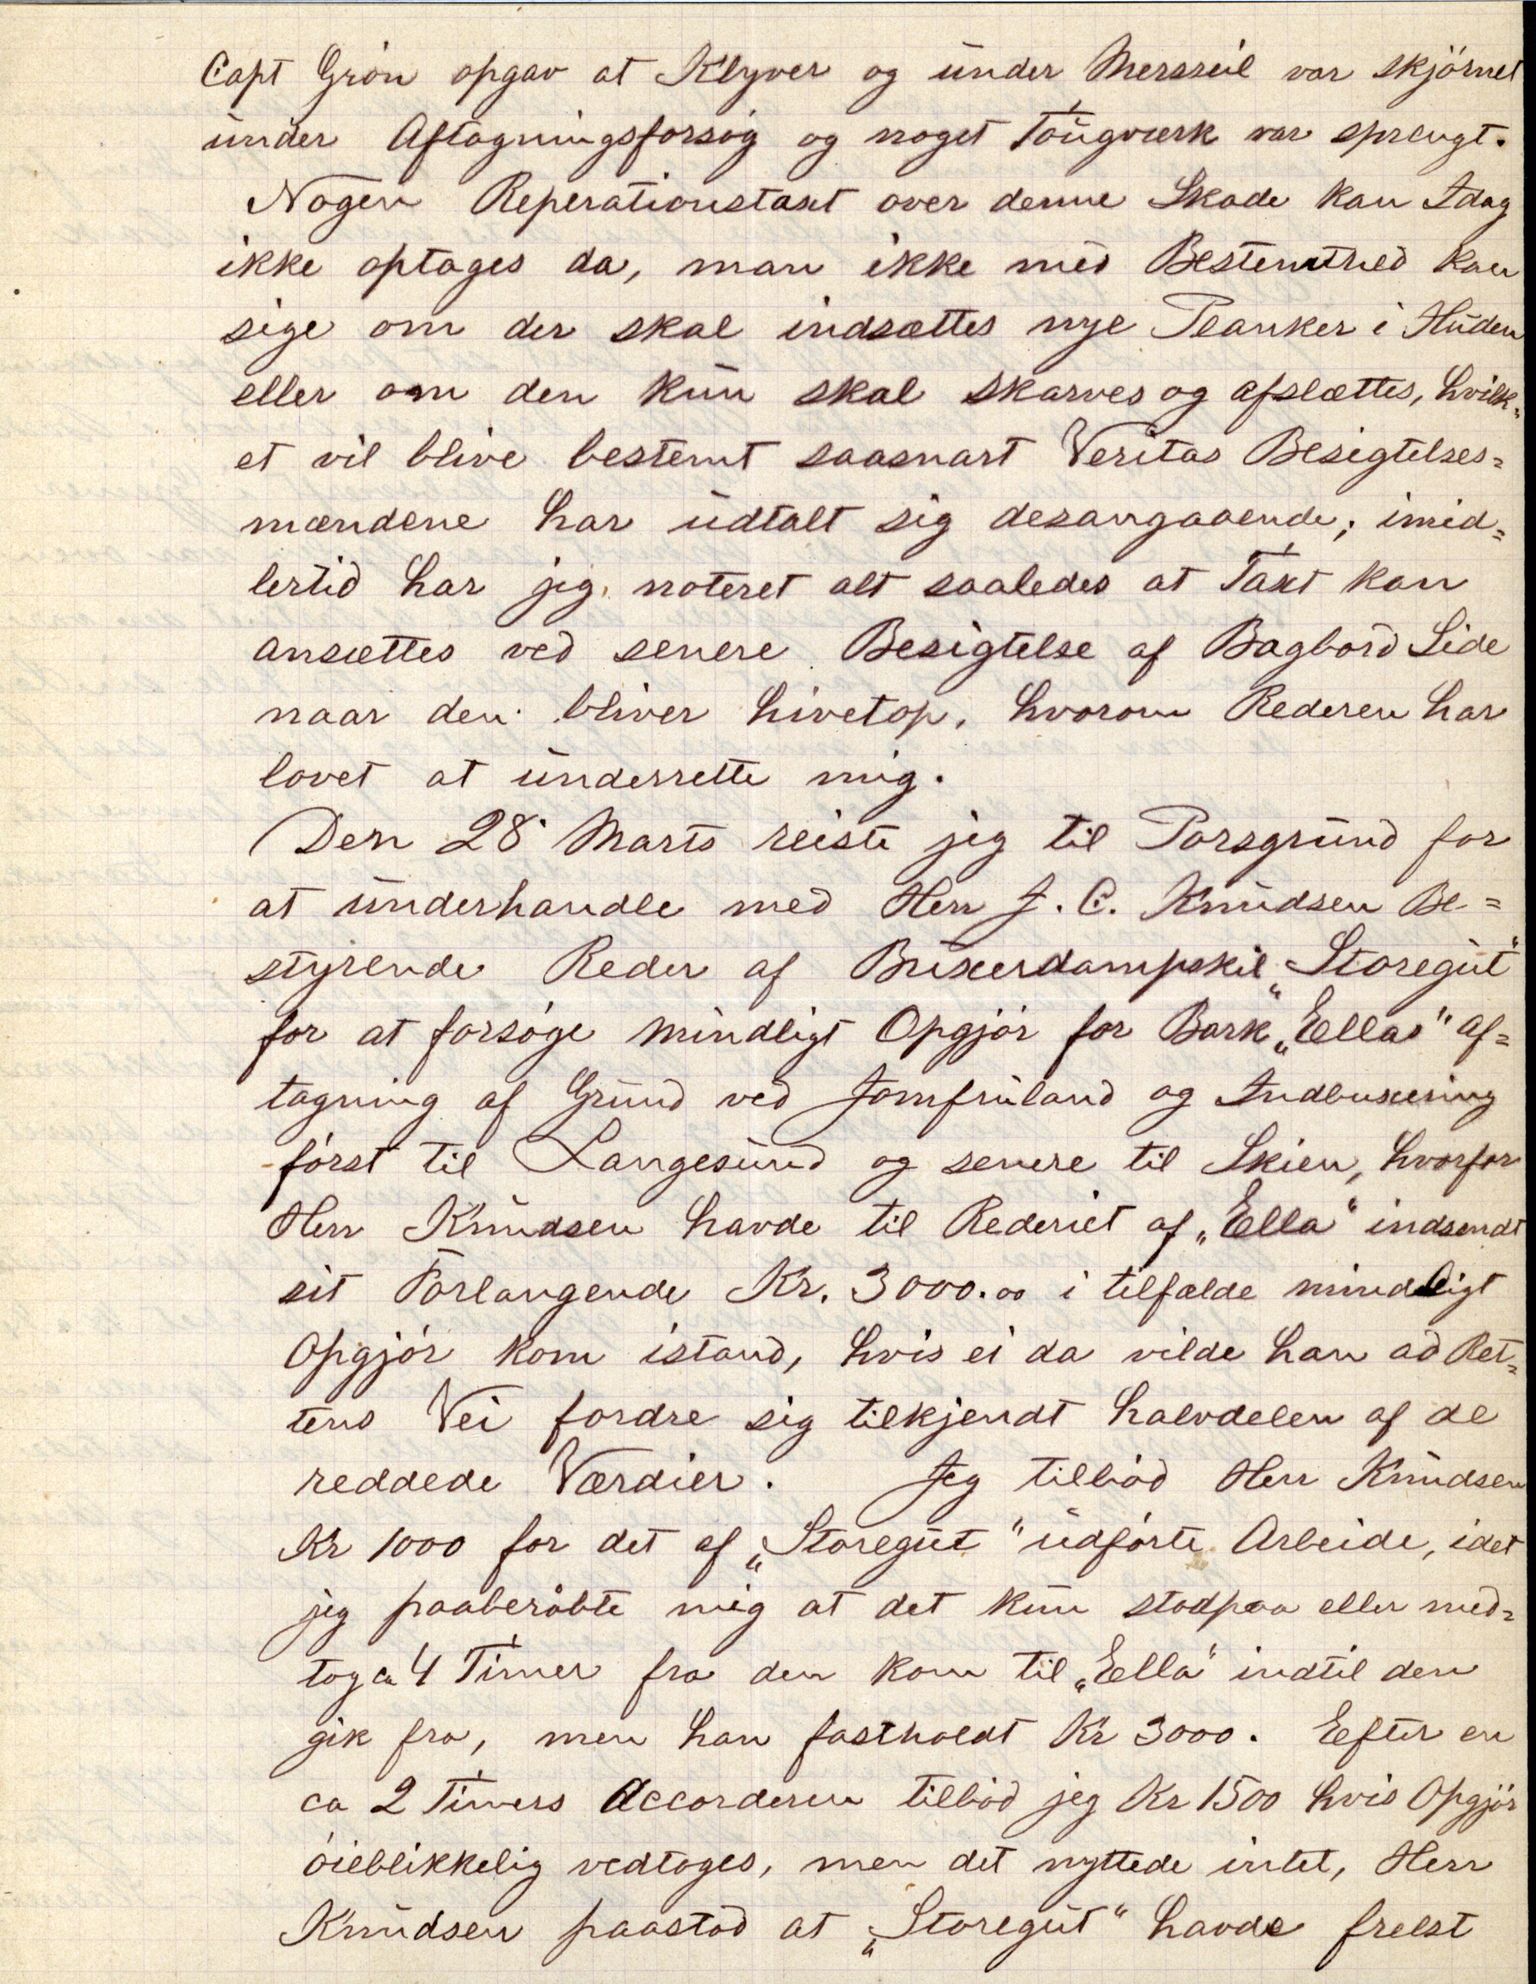 Capt Grön opgav at Klyver og under Mersseil var skjörnet
under Aftagningsforsög og noget Tougværk var sprengt.
Nogen Reperationstaxt over denne Skade kan Idag
ikke optages da, man ikke med Bestemthed kan
sige om der skal indsættes nye Planker i Huden
eller om den kun skal skarves og afslættes, hvilk=
et vil blive bestemt saasnart Veritas Besigtelses=
mændene har udtalt sig desangaaende; imid=
lertid har jeg noteret alt saaledes at Taxt kan
ansættes ved senere Besigtelse af Bagbord Side
naar den bliver hivetop, hvorom Rederen har
lovet at underrette mig.
Den 28 Marts reiste jeg til Porsgrund for
at underhandle med Herr J. C. Knudsen Be=
styrende Reder af Buxerdampskil „Storegut"
for at forsöge mindligt Opgjör for Bark „Ellas" af=
tagning af Grund ved Jomfruland og Indbuxering
först til Langesund og senere til Skien, hvorfor
Herr Knudsen havde til Rederiet af „Ella" indsendt
sit Forlangende Kr. 3000.00 i tilfælde mindligt
Opgjör kom istand, hvis ei da vilde han ad Ret=
tens Vei fordre sig tilkjendt halvdelen af de
reddede Værdier. Jeg tilbod Herr Knudsen
Kr 1000 for det af „Storegut" udförte Arbeide, idet
jeg paaberåbte mig at det kun stodpaa eller med=
tog ca 4 Timer fra den kom til „Ella" indtil den
gik fra, men han fastholdt Kr 3000. Efter en
ca 2 Timers Accorderen tilbod jeg Kr 1500 hvis Opgjör
öieblikkelig vedtoges, men det nyttede intet, Herr
Knudsen paastod at „Storegut" havde frelst